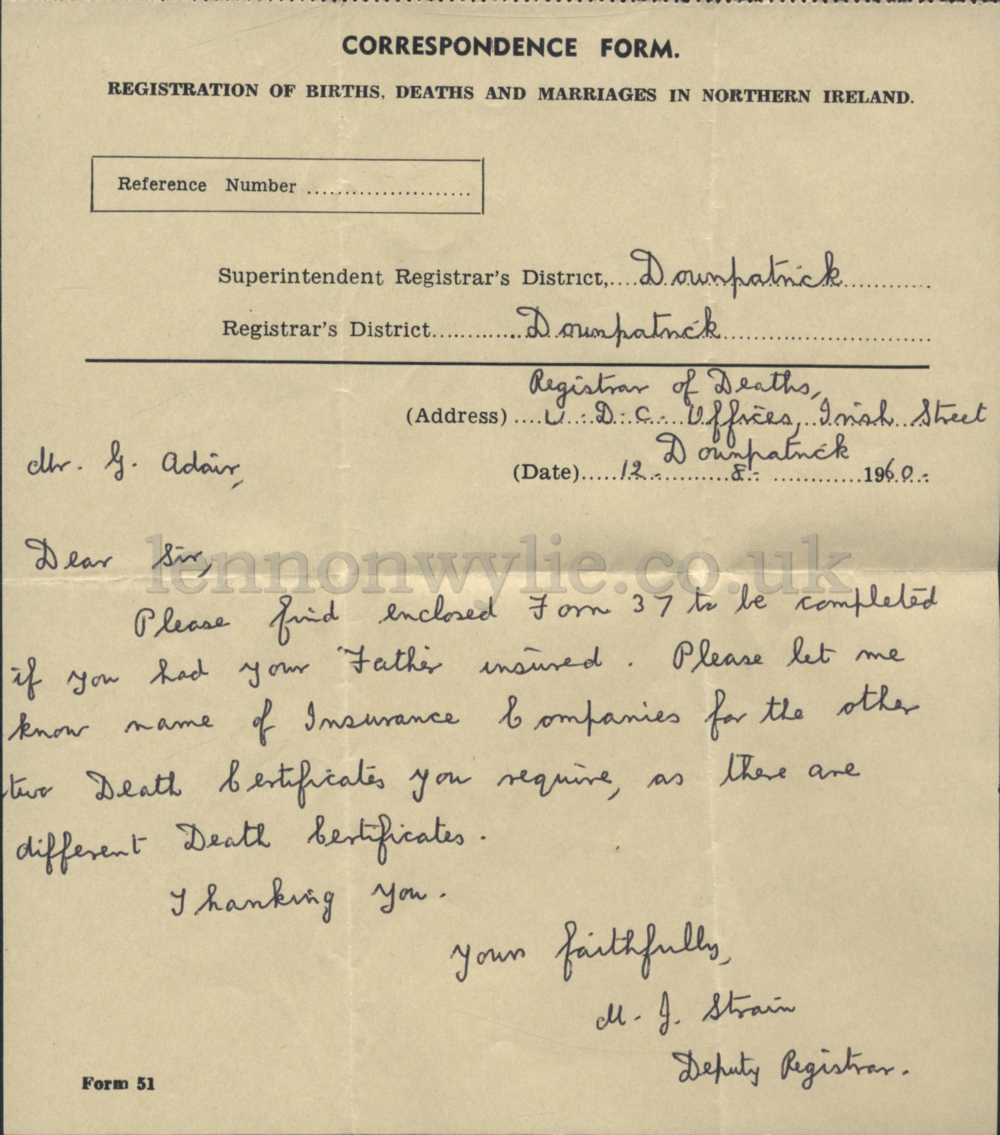 CORRESPONDENCE FORM.
REGISTRATION OF BIRTHS, DEATHS AND MARRIAGES IN NORTHERN IRELAND.
Reference Number ......................
Superintendent Registrar's District,....Downpatrick..............
Registrar's District..............Downpatrick...................................
Registrar of Deaths,
(Address) ....U.D.C. Offices, Irish Street
Downpatrick
Mr. G. Adair,
(Date).....12-.........8-..............1960.-
Dear Sir,
lennonwylie.co.uk
Please find enclosed Form 37 to be completed
if you had your Father insured. Please let me
know name of Insurance Companies for the other
two Death Certificates you require, as there are
different Death Certificates.
Thanking You.
Yours faithfully,
M. J. Strain
Deputy Registrar.
Form 51